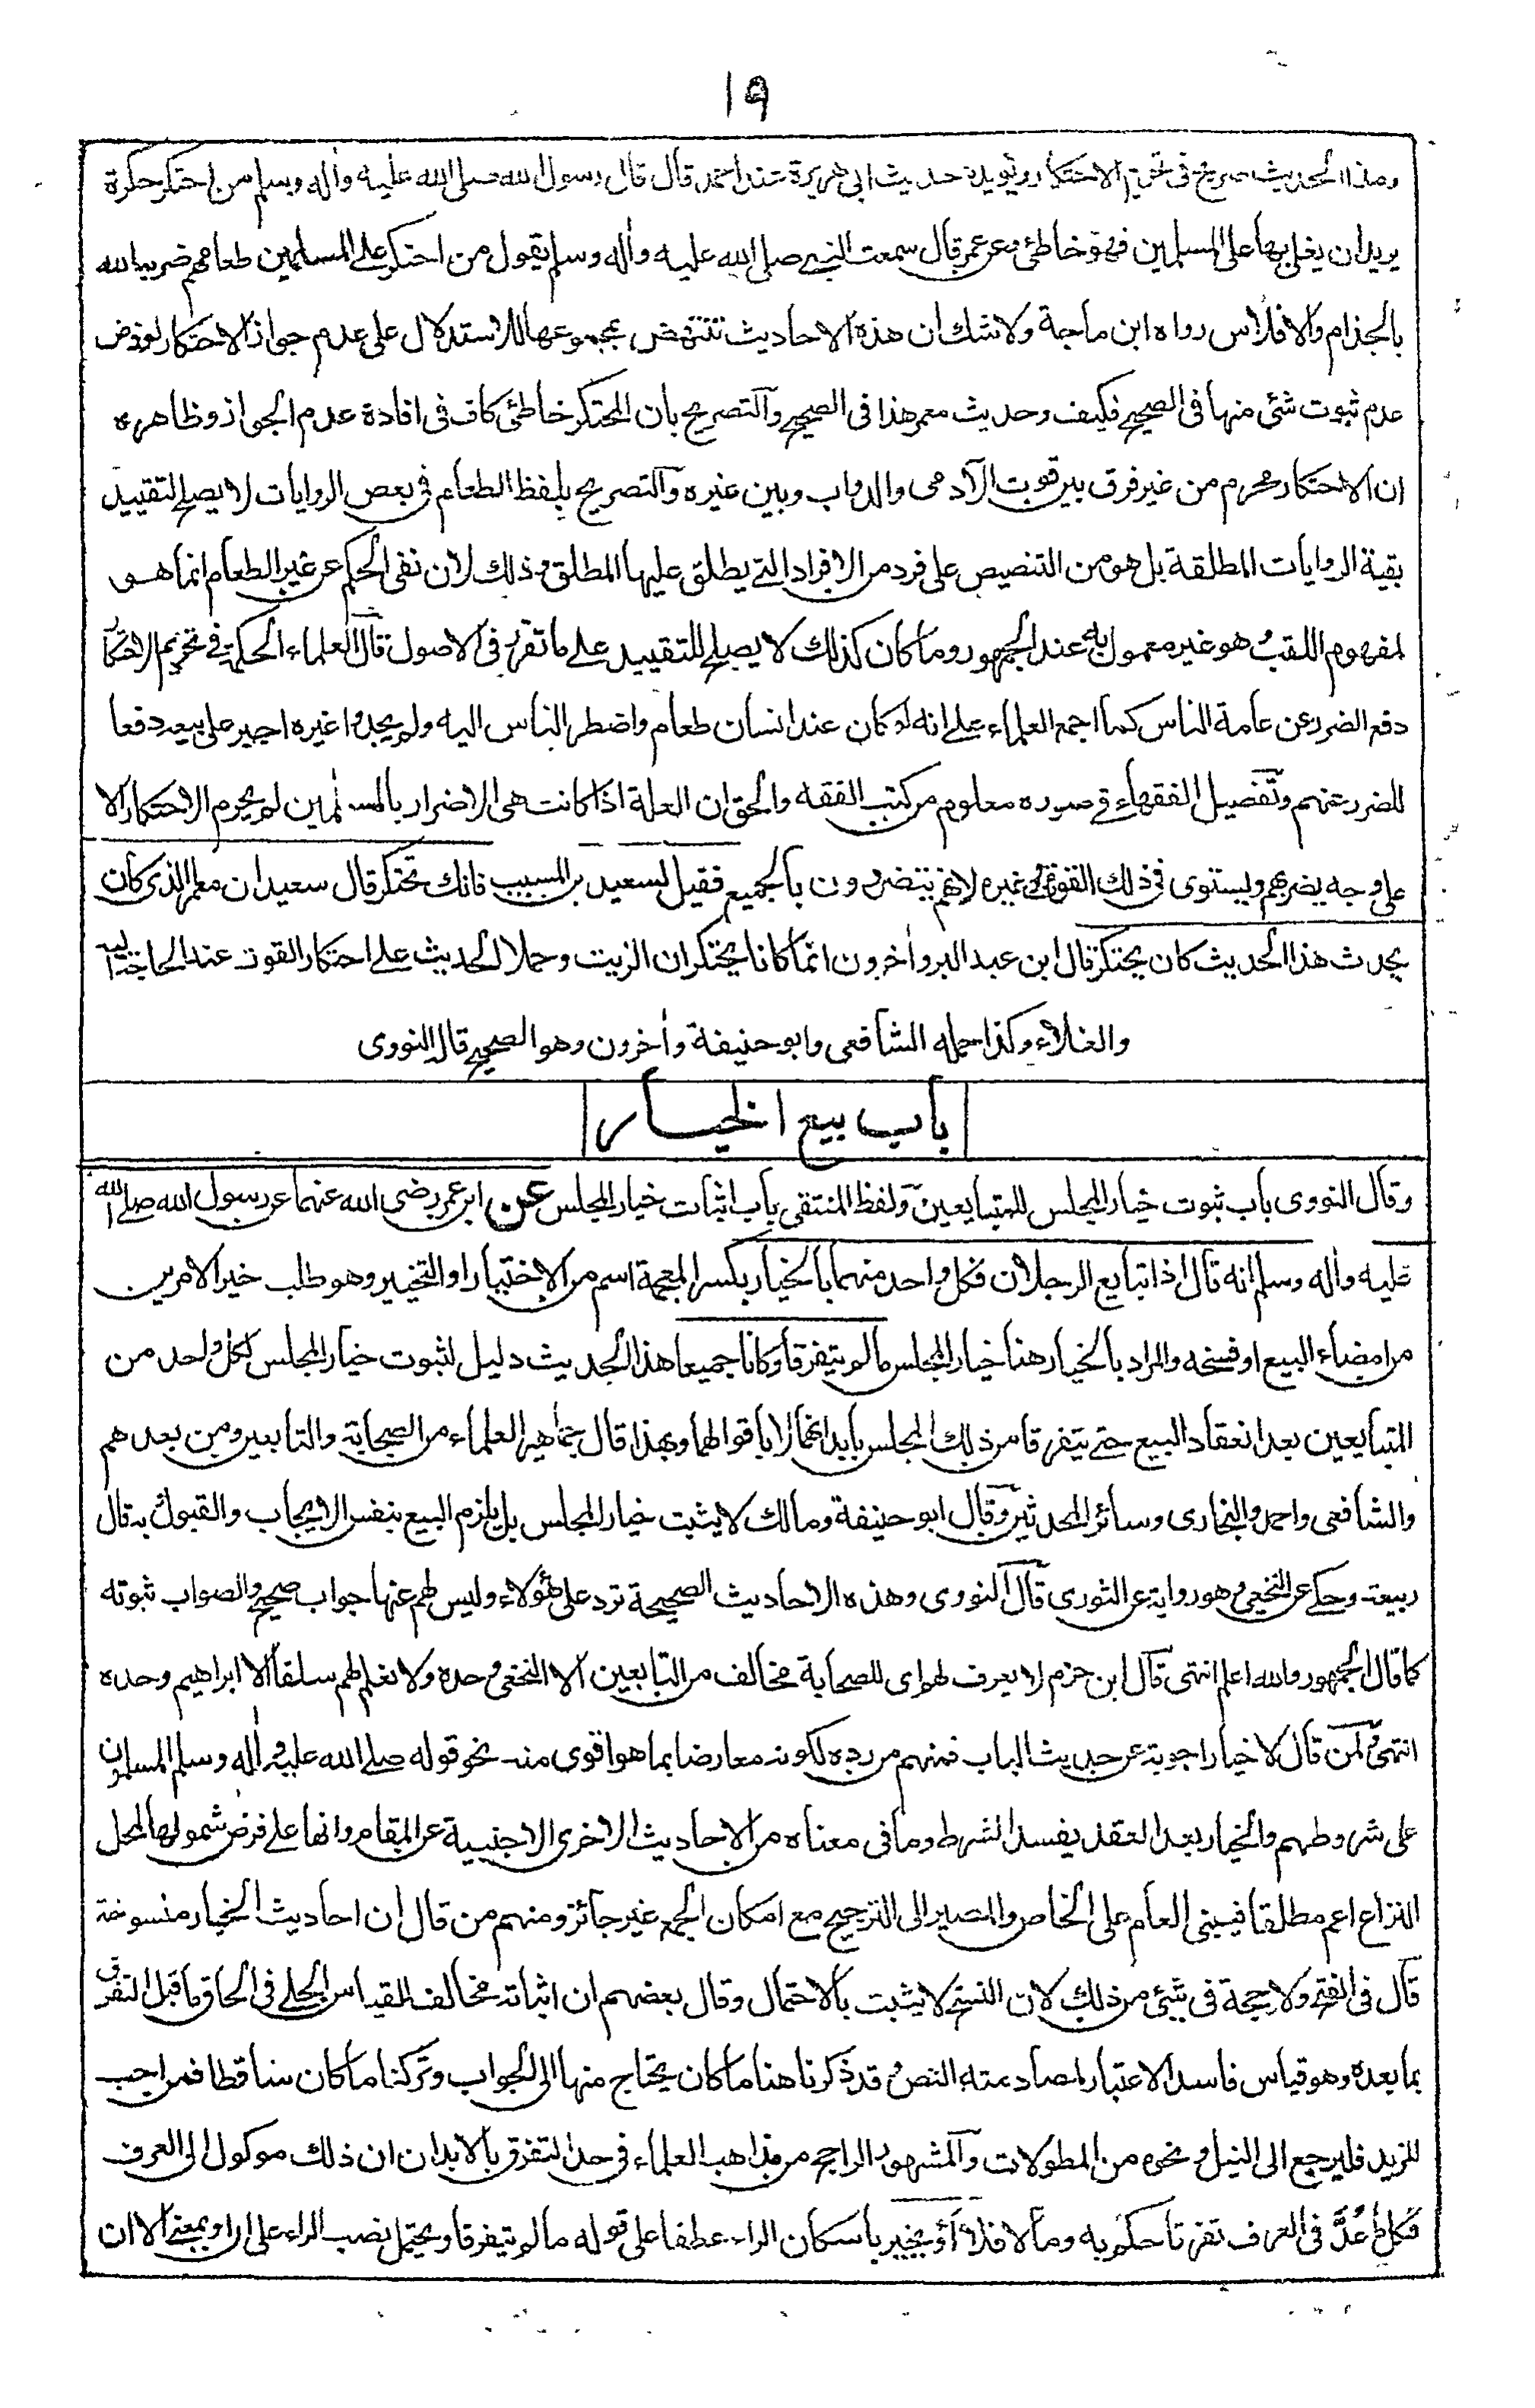 ١٩
وهذا الحديث صريح في تحريم الاحتكار ويؤيده حديث ابي هريرة عند احمد قال قال رسول الله صلى الله عليه واله وسلم من احتكر حكرة
يريد ان يغلي بها على المسلمين فهو خاطئ وعن عمر قال سمعت النبي صلى الله عليه واله وسلم يقول من احتكر على المسلمين طعامهم ضربه الله
بالجذام والافلاس رواه ابن ماجة ولا شك ان هذه الاحاديث تنتهض بمجموعها للاستدلال على عدم جواز الاحتكار لو فرض
عدم ثبوت شئ منها في الصحيح فكيف وحديث معمر هذا في الصحيح والتصريح بان المحتكر خاطئ كاف في افادة عدم الجواز وظاهره
ان الاحتكار محرم من غير فرق بين قوت الآدمى والدواب وبين غيره والتصريح بلفظ الطعام في بعض الروايات لا يصلح لتقييد
بقية الروايات المطلقة بل هو من التنصيص على فرد من الافراد التي يطلق عليها المطلق وذلك لان نفى الحكم عن غير الطعام انما هو
لمفهوم اللقب وهو غير معمول به عند الجمهور وما كان كذلك لا يصلح للتقييد على ما تقرر في الاصول قال العلماء الحكمة في تحريم الاحتكار
دفع الضرر عن عامة الناس كما اجمع العلماء على انه لو كان عند انسان طعام واضطر الناس اليه ولم يجدوا غيره اجبر على بيعه دفعا
للضرر عنهم وتفصيل الفقهاء في صوره معلوم من كتب الفقه والحق ان العلة اذا كانت هي الاضرار بالمسلمين لم يحرم الاحتكار الا
على وجه يضر بهم ويستوى في ذلك القوت وغيره لانهم يتضررون بالجميع فقيل لسعيد بن المسيب فانك تحتكر قال سعيد ان معمر الذى كان
يحدث هذا الحديث كان يحتكر قال ابن عبد البر واخرون انما كانا يحتكران الزيت وحملا الحديث على احتكار القوت عند الحاجة اليه
والغلاء وكذا حمله الشافعى وابو حنيفة واخرون وهو الصحيح قاله النووى
باب بيع الخيار
وقال النووى باب ثبوت خيار المجلس للمتبايعين ولفظ المنتقى باب اثبات خيار المجلس عن ابن عمر رضى الله عنهما عن رسول الله صلى الله
عليه واله وسلم انه قال اذا تبايع الرجلان فكل واحد منهما بالخيار بكسر المعجمة اسم من الاختيار او التخيير وهو طلب خير الامرين
من امضاء البيع او فسخه والمراد بالخيار هنا خيار المجلس ما لم يتفرقا وكانا جميعا هذا الحديث دليل لثبوت خيار المجلس لكل واحد من
المتبايعين بعد انعقاد البيع حتى يتفرقا من ذلك المجلس بابدانهما لا باقوالهما وبهذا قال جماهير العلماء من الصحابة والتابعين ومن بعدهم
والشافعى واحمد والبخارى وسائر المحدثين وقال ابو حنيفة ومالك لا يثبت خيار المجلس بل يلزم البيع بنفس الايجاب والقبول به قال
ربيعة وحكى عن النخعى وهو رواية عن الثورى قال النووى وهذه الاحاديث الصحيحة ترد على هؤلاء وليس لهم عنها جواب صحيح والصواب ثبوته
كما قال الجمهور والله اعلم انتهى قال ابن حزم لا يعرف لهم اى للصحابة مخالف من التابعين الا النخعى وحده ولا نعلم لهم سلفا الا ابراهيم وحده
انتهى ولمن قال لا خيار اجوبة عن حديث الباب فمنهم من رده لكونه معارضا بما هو اقوى منه نحو قوله صلى الله عليه واله وسلم المسلمون
على شروطهم والخيار بعد العقد يفسد الشرط وما في معناه من الاحاديث الاخرى الاجنبية عن المقام وانها على فرض شمولها لمحل
النزاع اعم مطلقا فيبنى العام على الخاص والمصير الى الترجيح مع امكان الجمع غير جائز ومنهم من قال ان احاديث الخيار منسوخة
قال في الفتح ولا حجة في شئ من ذلك لان النسخ لا يثبت بالاحتمال وقال بعضهم ان اثباته مخالف للقياس الجلى في الحاق ما قبل التفرق
بما بعده وهو قياس فاسد الاعتبار لمصادمته النص وقد ذكرنا هنا ما كان يحتاج منها الى الجواب وتركنا ما كان ساقطا فمن احب
المزيد فليرجع الى النيل ونحوه من المطولات والمشهور الراجح من مذاهب العلماء في حد التفرق بالابدان ان ذلك موكول الى العرف
فكل ما عُدَّ في العرف تفرقا حكم به وما لا فلا أو يخير باسكان الراء عطفا على قوله ما لم يتفرقا ويحتمل نصب الراء على ان او بمعنى الا ان